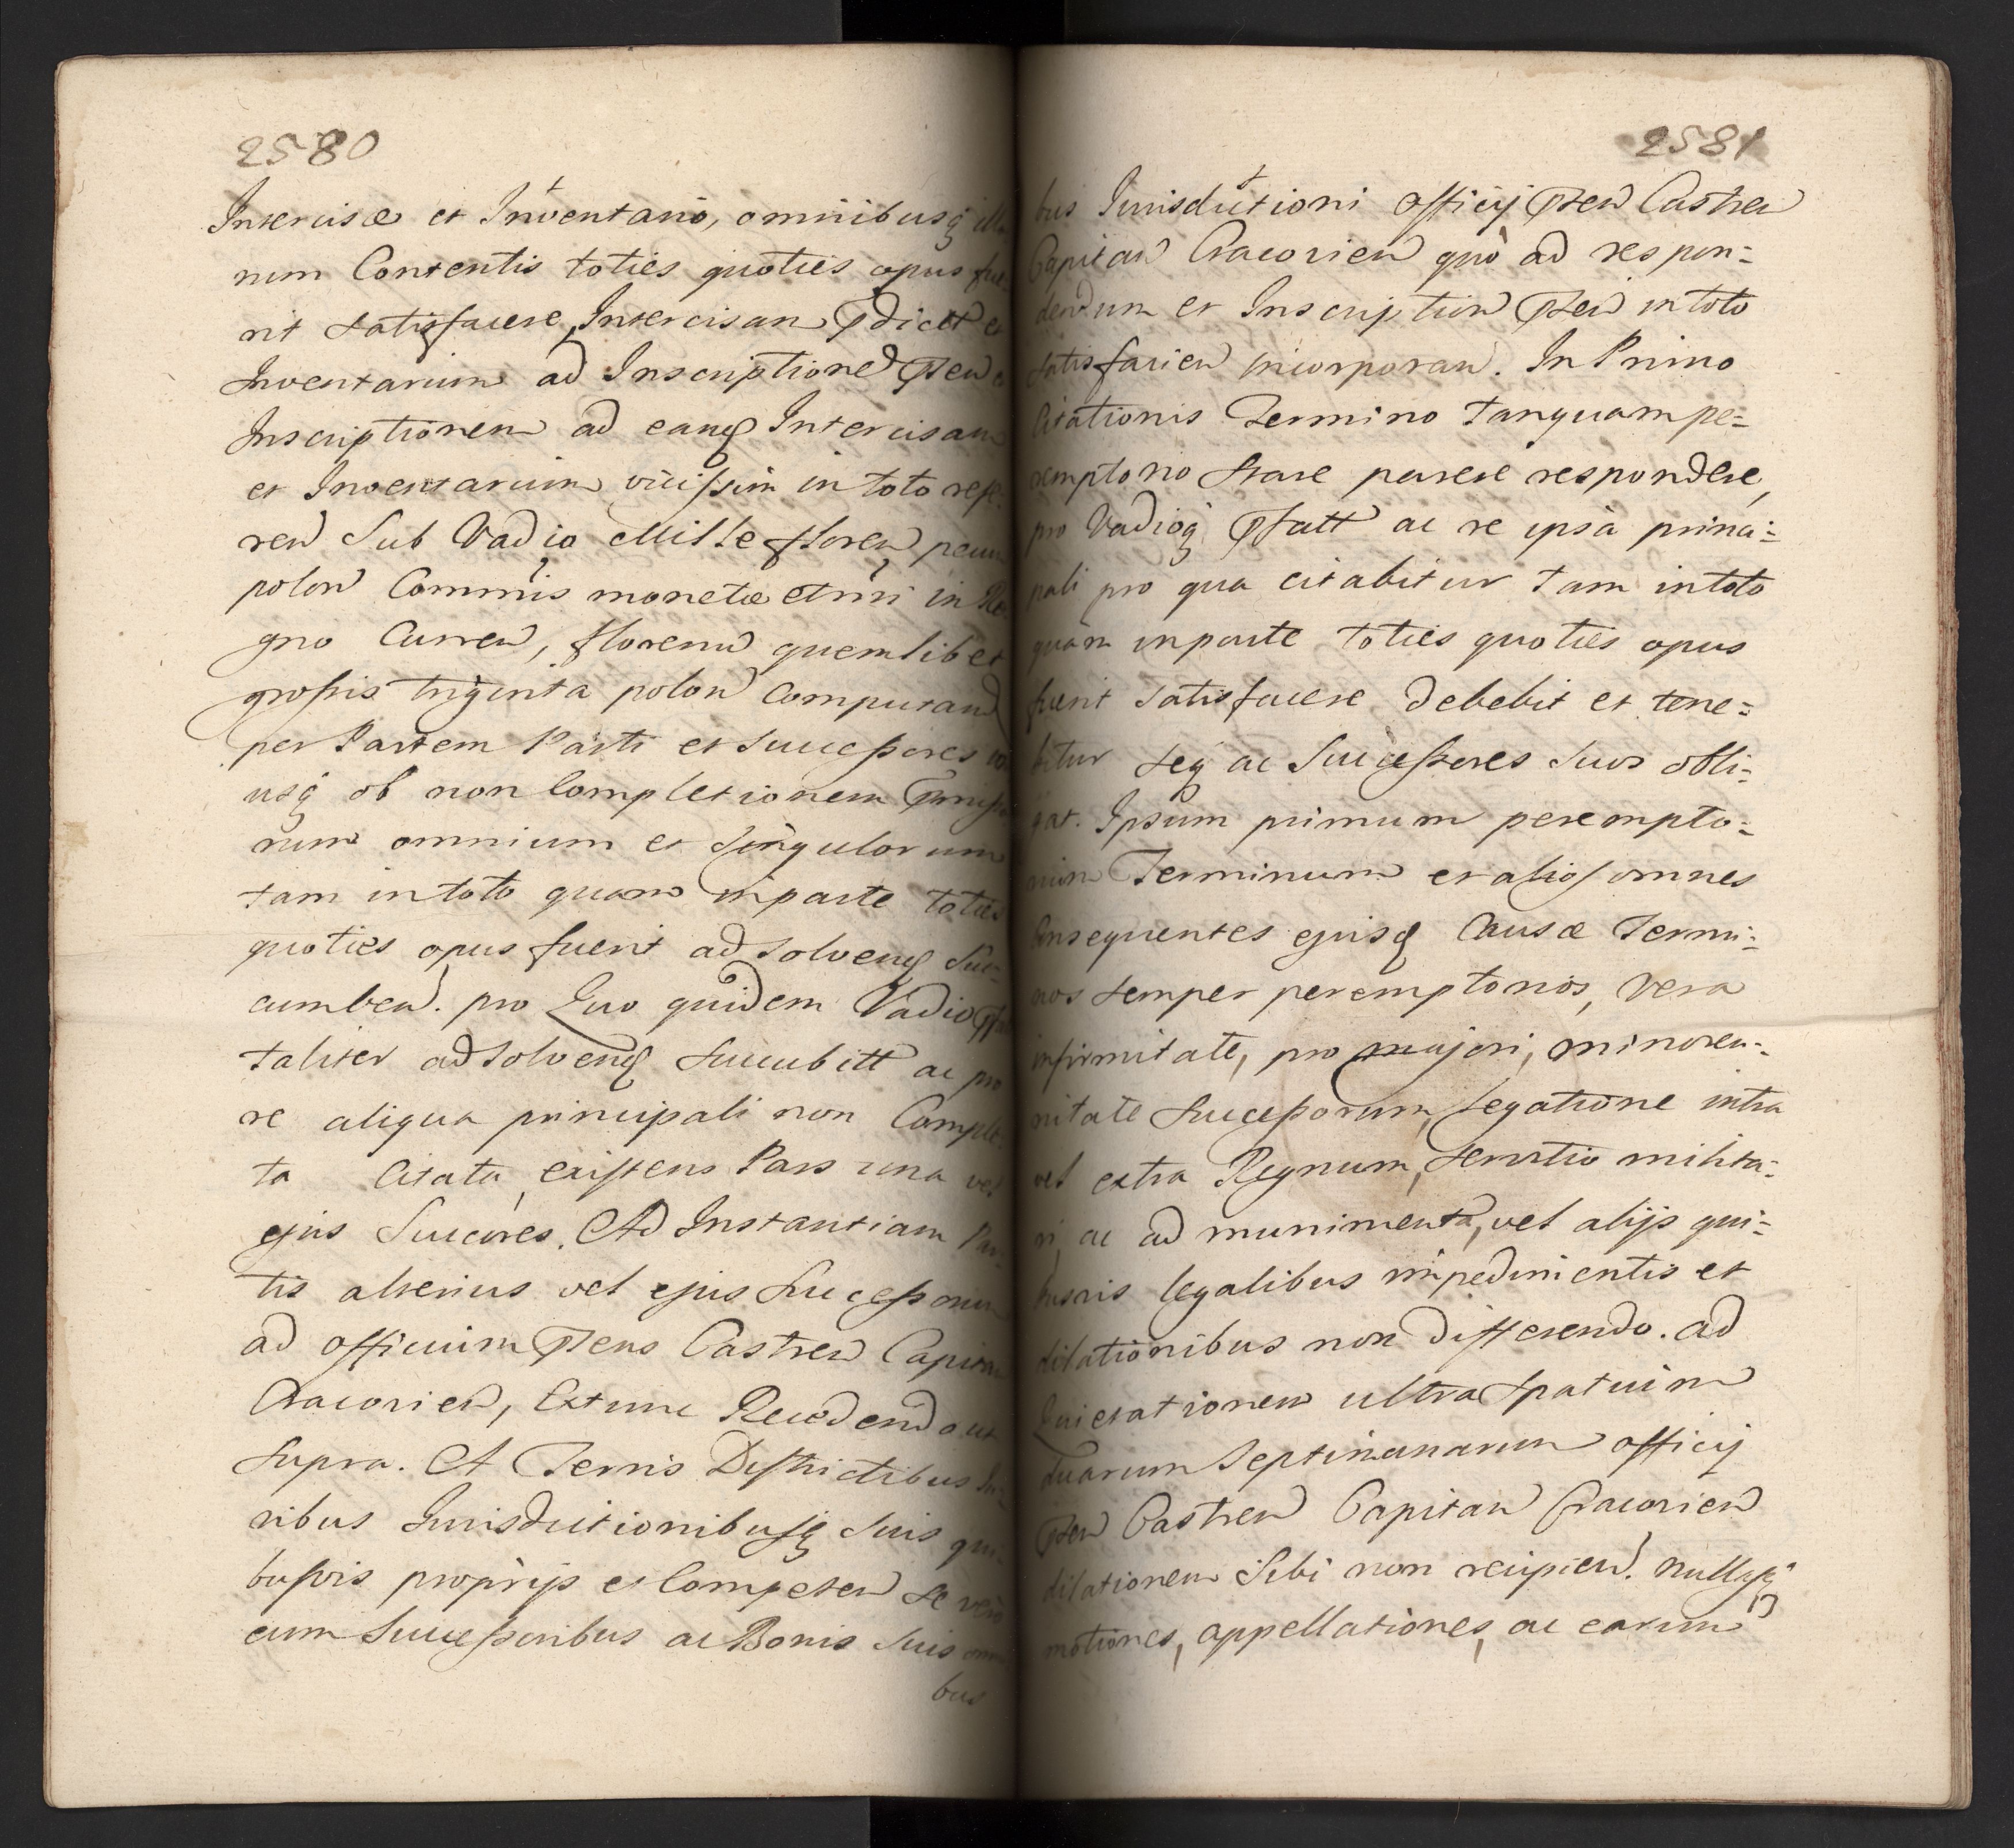 2580
Intercisæ et Inventario, omnibusq̃
rum Contentis toties quoties opus fue
rit satisfacere, Intercisam Pdictt et
Inventarium ad Inscriptioneɔ Pnteɔ
Inscriptionem ad eanɖ Intercisam
et Inventarium vicissim in toto refe
renɔ Sub Vadio Mille floreɔ pecun
polon̄ Comm̃is monetæ et nri in Re
gno Curreɔ, florenū quemlibet
grossis triginta polon̄ Computand
per Partem Parti et Successores
usq̃ ob non Completionem Pmisso
rum omnium et singulorum
tam in toto quam in parte toties
quoties opus fuerit adsolvenɖ Suc=
cumbeɔ. pro Quo quidem Vadio
taliter adsolvenɖ Succubitt ac pro
re aliqua principali non Comple
ta Citata existens Pars una vel
ejus Succores. Ad Instantiam Par
tis alterius vel ejus Successorum
ad officium Pñens Castreɔ Capitan
Cracovieɔ, Extunc Recedendo ut
supra. A Terris Districtibus Ju
ribus Jurisdictionibusq̃ suis qui
busvis proprijs et Competeɔ se vero
cum Successoribus ac Bonis suis omni
bus
2581
bus Jurisdictioni officij Pñteɔ Castreɔ
Capitan̄ Cracovieɔ quò ad respon=
dendum et Inscriptioɔ Pñteɔ in toto
satisfacieɔ incorporaɔ. In Primo
Citationis Termino tanquam pe=
remptorio stare parere respondere,
pro Vadioq̃ Pfatt ac re ipsa princi=
pali pro qua citabitur tam in toto
quam in parte toties quoties opus
fuerit satisfacere debebit et tene=
bitur seq̃ ac Successores suos obli=
gat. Ipsum primum perempto=
rium Terminum et aliosɖ omnes
Consequentes ejusɖ Causæ Termi=
nos semper peremptorios, vera
infirmitate, pro majori, minoren=
nitate Successorum, legatione intra
vel extra Regnum, servitio milita=
ri, ac ad munimenta, vel alijs qui=
busvis legalibus impedimentis et
dilationibus non differendo. ad
Quietationem ultra spatium
duarum Septimanarum officij
Pñteɔ Castreɔ Capitaɔ Cracovieɔ
dilationem Sibi non recipieɔ. nullasq̃
motiones, appellationes, ac earum